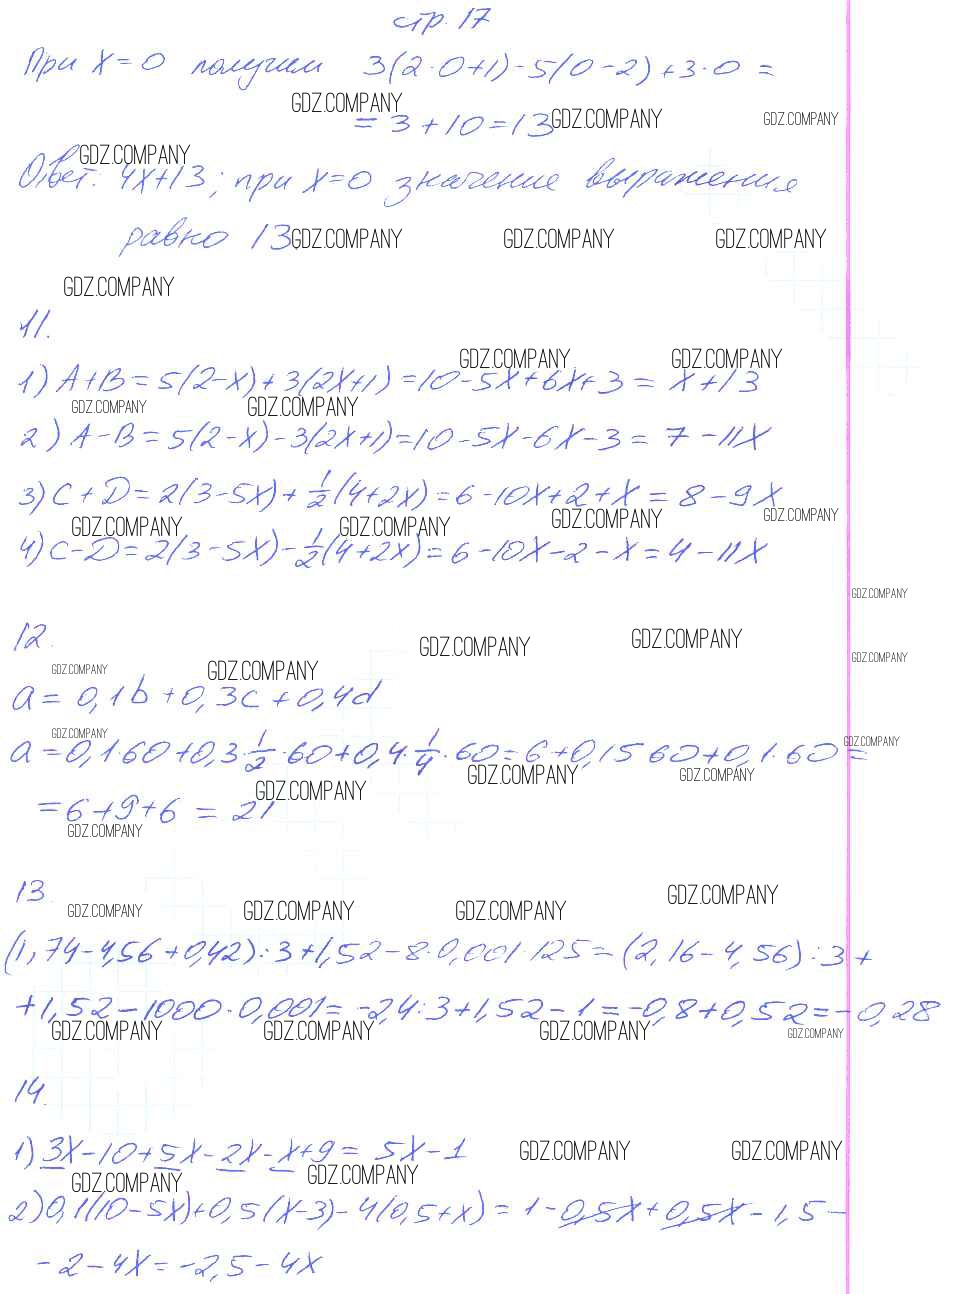 стр. 17
При x = 0 получим 3(2·0+1)-5(0-2)+3·0 =
GDZ.COMPANY
= 3+10=13 GDZ.COMPANY GDZ.COMPANY
GDZ.COMPANY
Ответ: 4x+13; при x=0 значение выражения
равно 13 GDZ.COMPANY GDZ.COMPANY GDZ.COMPANY
GDZ.COMPANY
11.
GDZ.COMPANY GDZ.COMPANY
1) A+B=5(2-x)+3(2x+1)=10-5x+6x+3= x+13
GDZ.COMPANY GDZ.COMPANY
2) A-B=5(2-x)-3(2x+1)=10-5x-6x-3= 7-11x
3) C+D=2(3-5x)+1/2(4+2x)=6-10x+2+x=8-9x
GDZ.COMPANY GDZ.COMPANY GDZ.COMPANY GDZ.COMPANY
4) C-D=2(3-5x)-1/2(4+2x)=6-10x-2-x=4-11x
GDZ.COMPANY
12.
GDZ.COMPANY GDZ.COMPANY
GDZ.COMPANY GDZ.COMPANY GDZ.COMPANY
a= 0,1b+0,3c+0,4d
GDZ.COMPANY GDZ.COMPANY
a=0,1·60+0,3·1/2·60+0,4·1/4·60=6+0,15 60+0,1·60=
GDZ.COMPANY GDZ.COMPANY
GDZ.COMPANY
=6+9+6 = 21
GDZ.COMPANY
13.
GDZ.COMPANY
GDZ.COMPANY GDZ.COMPANY GDZ.COMPANY
(1,74-4,56+0,42):3+1,52-8·0,001·125=(2,16-4,56):3+
+1,52-1000·0,001=-2,4:3+1,52-1=-0,8+0,52=-0,28
GDZ.COMPANY GDZ.COMPANY GDZ.COMPANY GDZ.COMPANY
14.
1) 3x-10+5x-2x-x+9= 5x-1 GDZ.COMPANY GDZ.COMPANY
GDZ.COMPANY GDZ.COMPANY
2) 0,1(10-5x)+0,5(x-3)-4(0,5+x)= 1-0,5x+0,5x-1,5-
-2-4x=-2,5-4x